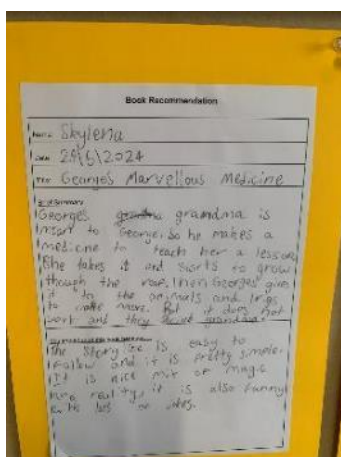 Book Recommendation
Name Skylena
Date 28/5/2024
Title George's Marvellous Medicine
Brief Summary
Georges grandma is
mean to George. So he makes a
medicine to teach her a lesson
She takes it and starts to grow
though the roof. Then Georges gives
it to the animals and trys
to make more. But it does not
work and they
The story is easy to
follow and it is pretty simple.
It is nice mix of magic
and reality, it is also funny
with lots of jokes.